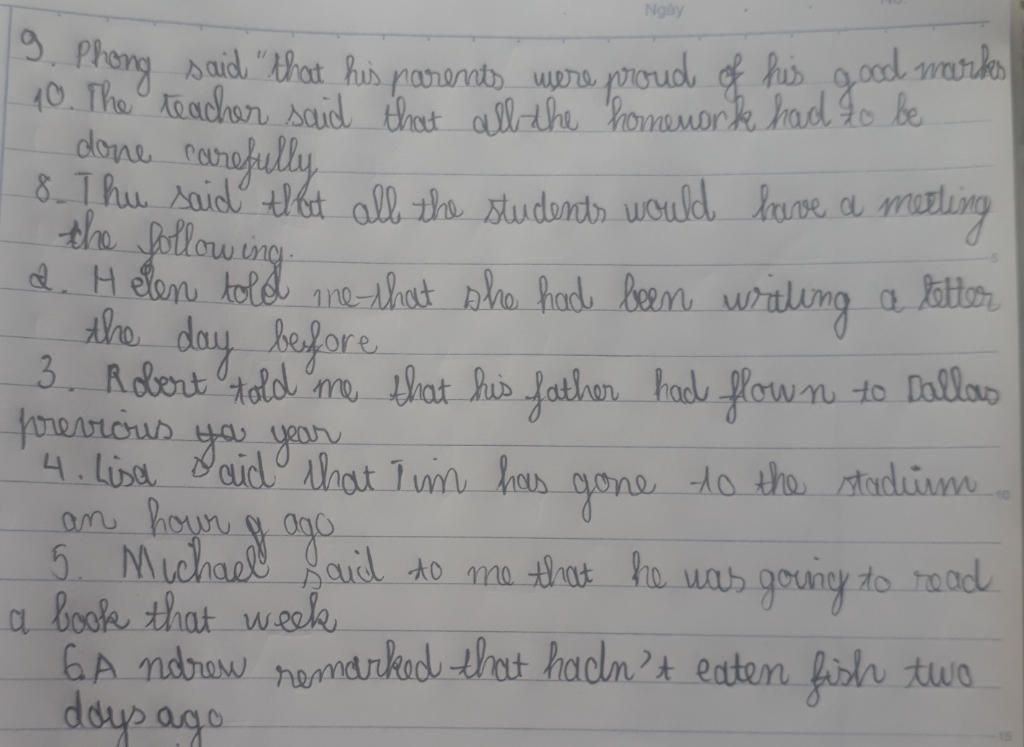 Ngày
9. Phong said "that his parents were proud of his good marks
10. The teacher said that all the homework had to be
done carefully
8. Thu said that all the students would have a meeting
the following.
2. Helen told me that she had been writing a letter
the day before
3. Robert told me that his father had flown to Dallas
previous ya year
4. Lisa said that Tim has gone to the stadium
an hour g ago
5. Michael said to me that he was going to read
a book that week
6. Andrew remarked that hadn't eaten fish two
days ago
5
10
15